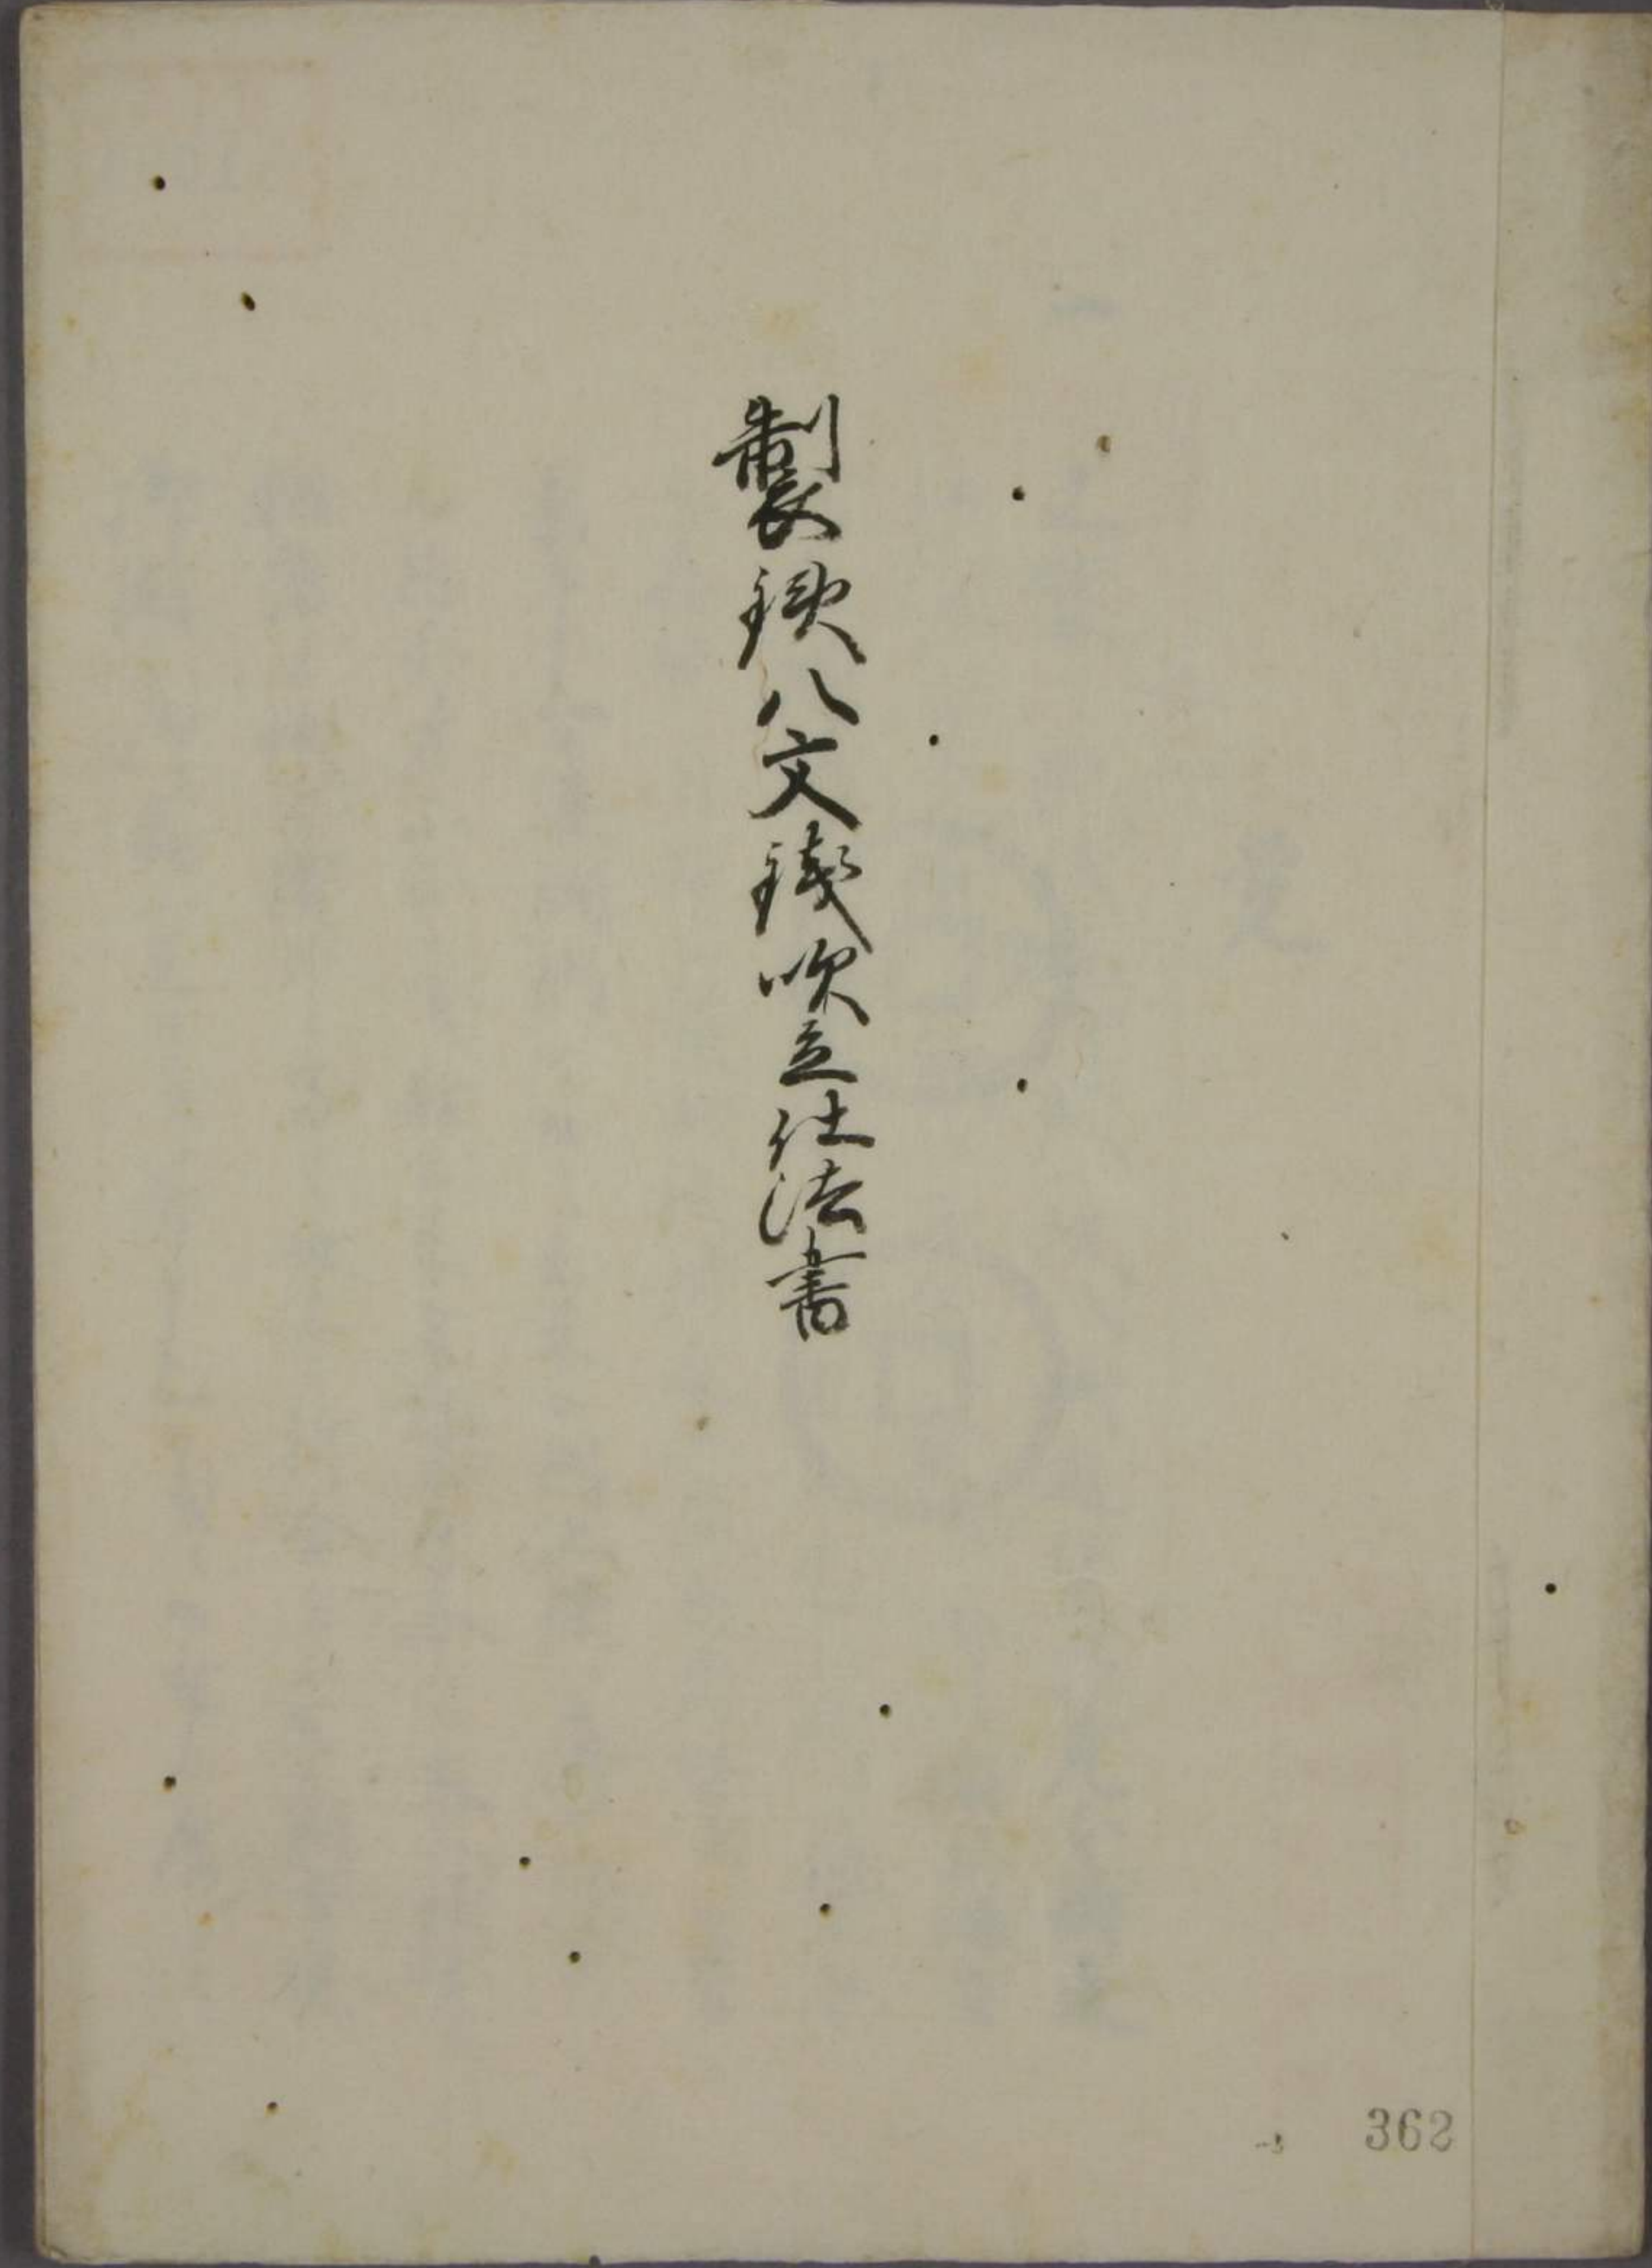 製鉄八文銭吹立仕法書
362